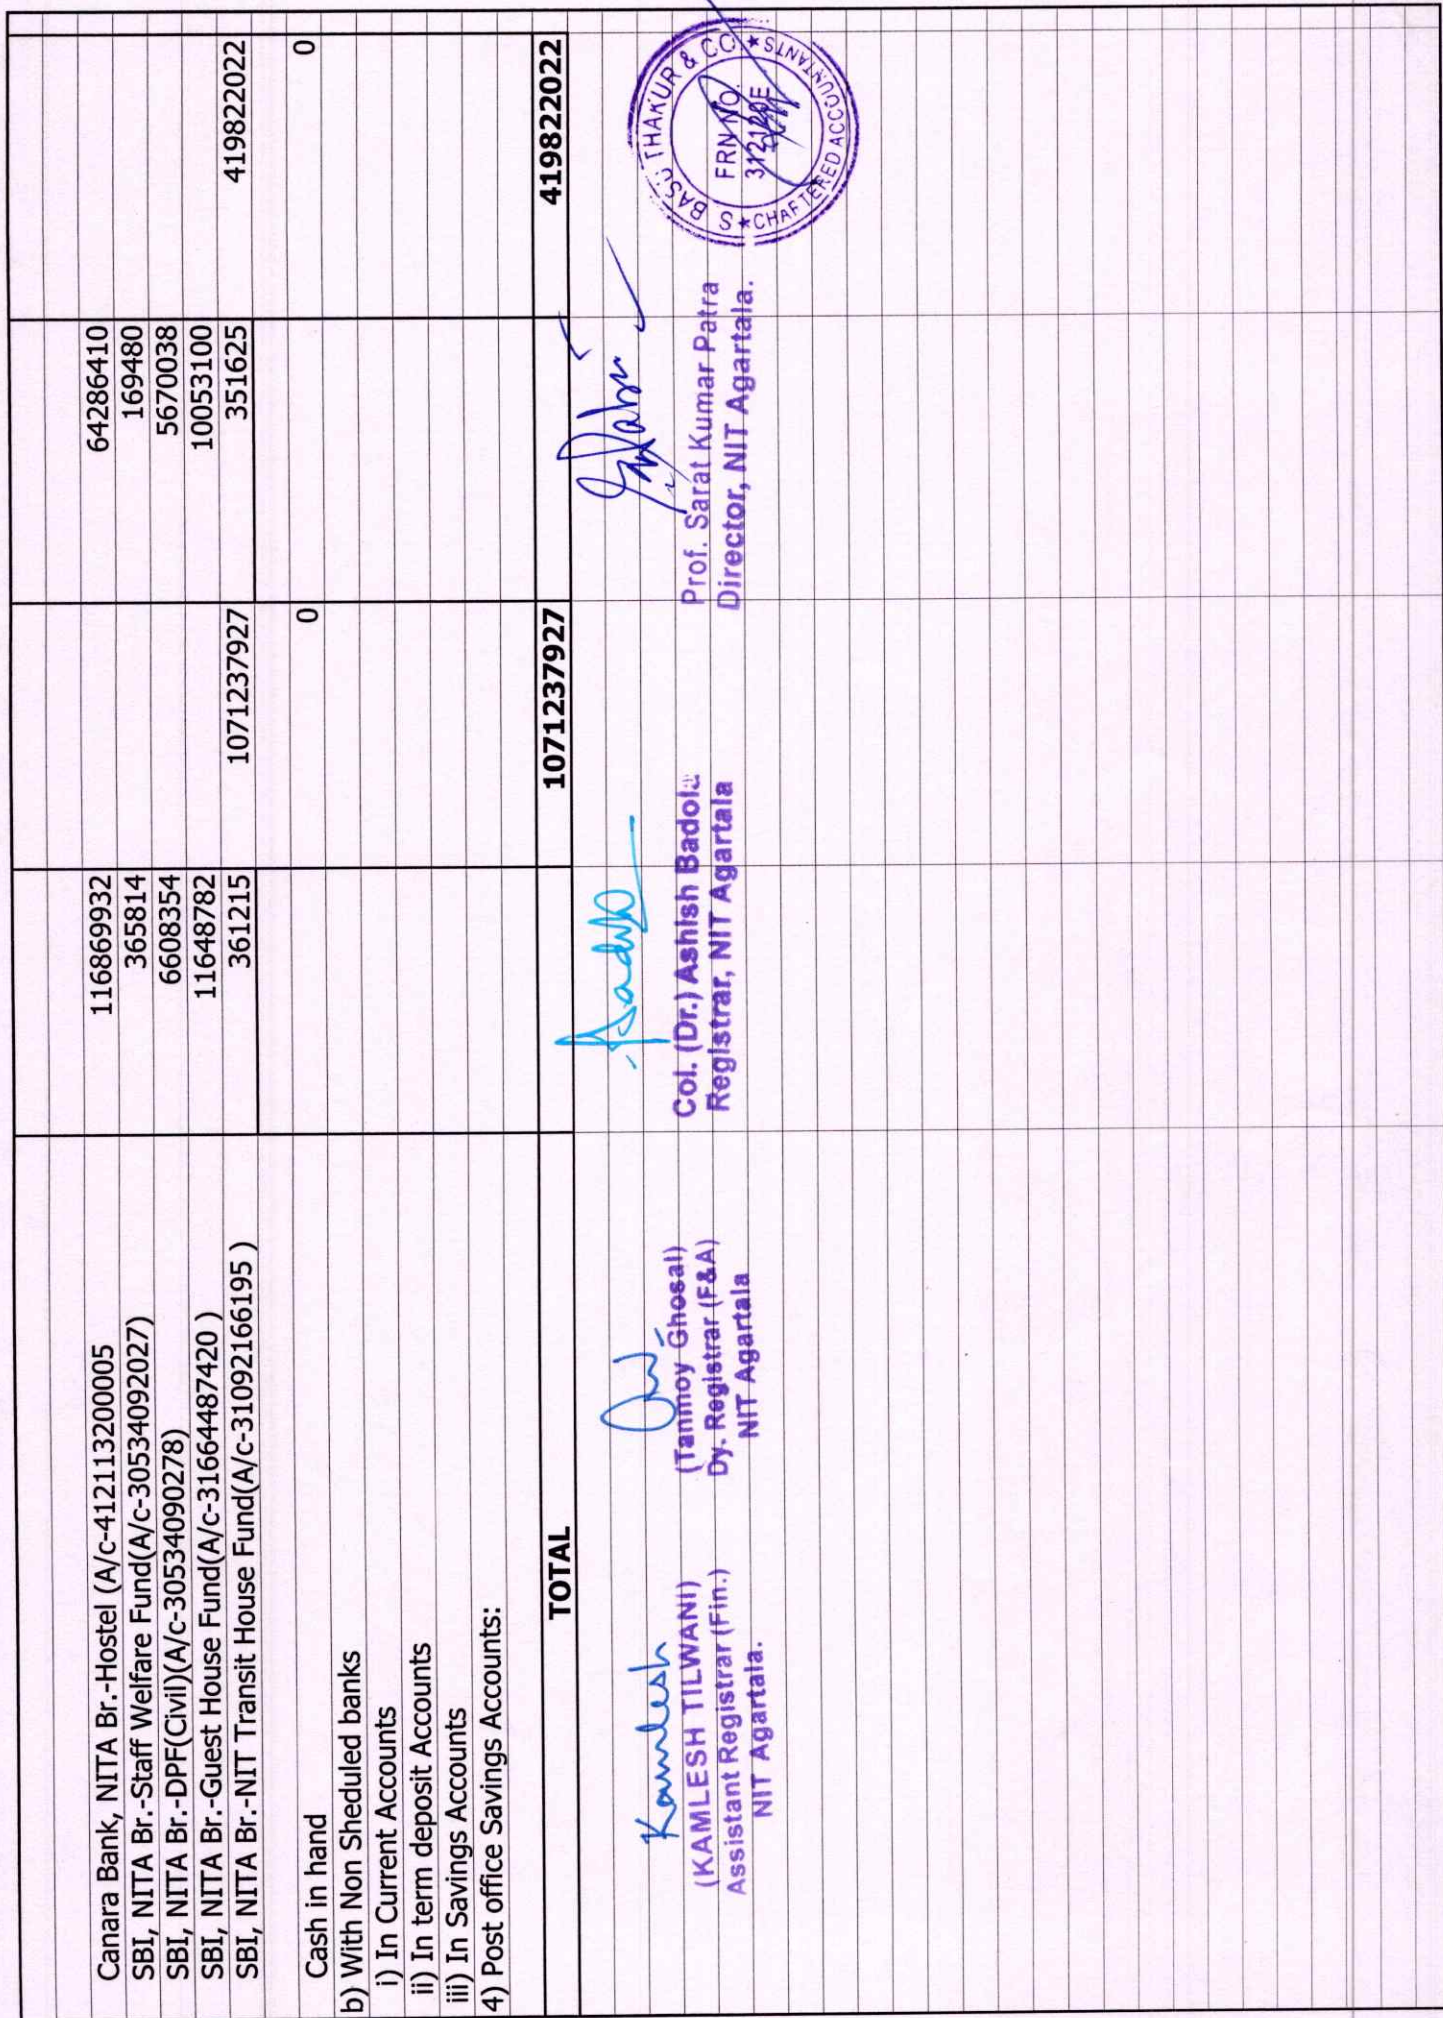 Canara Bank, NITA Br.-Hostel (A/c-4121132000005 116869932 64286410
SBI, NITA Br.-Staff Welfare Fund(A/c-30534092027) 365814 169480
SBI, NITA Br.-DPF(Civil)(A/c-30534090278) 6608354 5670038
SBI, NITA Br.-Guest House Fund(A/c-31664487420 ) 11648782 10053100
SBI, NITA Br.-NIT Transit House Fund(A/c-31092166195 ) 361215 1071237927 351625 4198222022
Cash in hand 0 0
b) With Non Sheduled banks
i) In Current Accounts
ii) In term deposit Accounts
iii) In Savings Accounts
4) Post office Savings Accounts:
TOTAL 1071237927 4198222022
Kamlesh
(KAMLESH TILWANI)
Assistant Registrar (Fin.)
NIT Agartala.
(Tanmoy Ghosal)
Dy. Registrar (F&A)
NIT Agartala
Col. (Dr.) Ashish Badola
Registrar, NIT Agartala
Prof. Sarat Kumar Patra
Director, NIT Agartala.
S BASU THAKUR & CO. ★ CHARTERED ACCOUNTANTS ★
FRN NO.